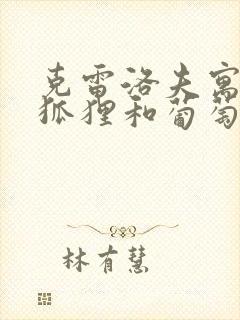 克雷洛夫寓
狐狸和葡萄
林有慧